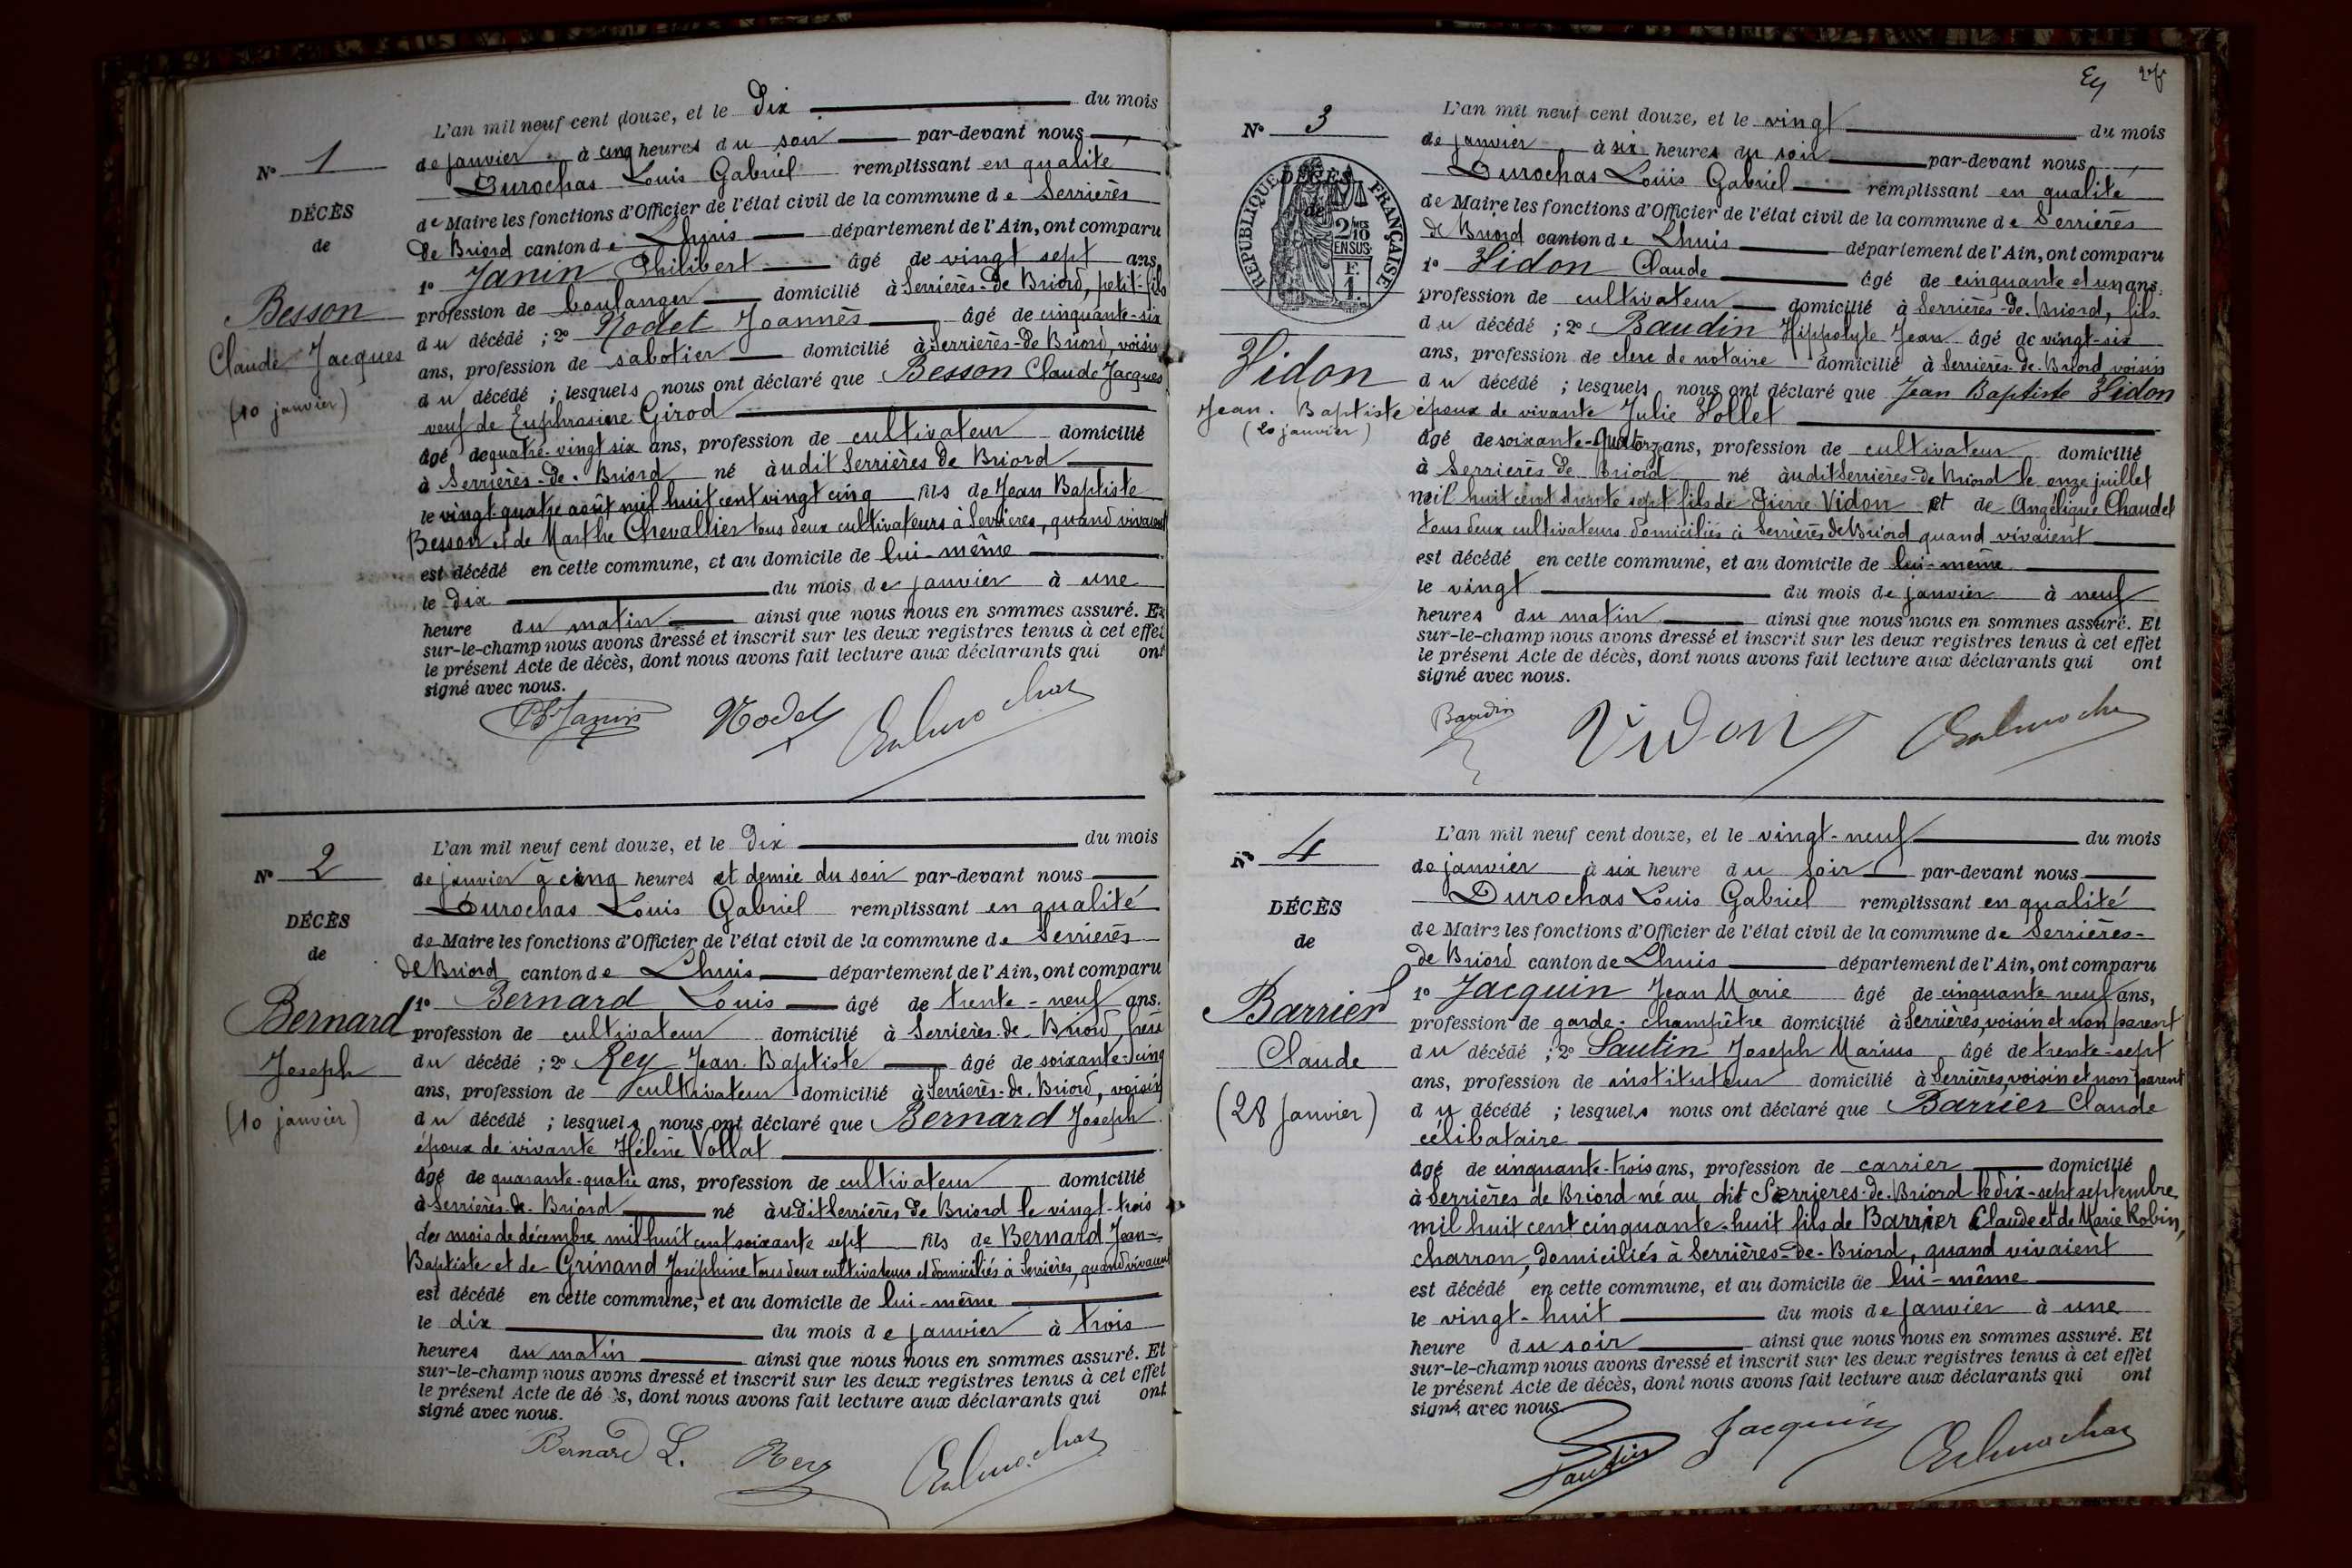 L'an mil neuf cent douze, et le Dix du mois
N° 1
de janvier à cinq heures du soir par-devant nous
Durochas Louis Gabriel remplissant en qualité
DÉCÈS
de Maire les fonctions d'Officier de l'état civil de la commune de Serrières
de
de Briord canton de Lhuis département de l'Ain, ont comparu
1° Janin Philibert âgé de vingt sept ans,
profession de boulanger domicilié à Serrières-de Briord, petit-fils
Besson
du décédé ; 2° Nodet Joannès âgé de cinquante-six
Claude Jacques
ans, profession de sabotier domicilié à Serrières-de Briord, voisin
du décédé ; lesquels nous ont déclaré que Besson Claude Jacques
(10 janvier)
veuf de Euphrasine Girod
âgé de quatre-vingt six ans, profession de cultivateur domicilié
à Serrières-de-Briord né àudit Serrières de Briord
le vingt-quatre août mil huit cent vingt cinq fils de Jean Baptiste
Besson et de Marthe Chevallier tous deux cultivateurs à Serrières, quand vivaient
est décédé en cette commune, et au domicile de lui-même
le dix du mois de janvier à une
heure du matin ainsi que nous nous en sommes assuré. Et
sur-le-champ nous avons dressé et inscrit sur les deux registres tenus à cet effet
le présent Acte de décès, dont nous avons fait lecture aux déclarants qui ont
signé avec nous.
Ph Janin Nodet Durochas
L'an mil neuf cent douze, et le Dix du mois
N° 2
de janvier à cinq heures et demie du soir par-devant nous
Durochas Louis Gabriel remplissant en qualité
DÉCÈS
de Maire les fonctions d'Officier de l'état civil de la commune de Serrières
de
de Briord canton de Lhuis département de l'Ain, ont comparu
1° Bernard Louis âgé de trente-neuf ans.
Bernard
profession de cultivateur domicilié à Serrières-de-Briord frère
Joseph
du décédé ; 2° Rey Jean-Baptiste âgé de soixante-cinq
ans, profession de cultivateur domicilié à Serrières-de-Briord, voisin
(10 janvier)
du décédé ; lesquels nous ont déclaré que Bernard Joseph
époux de vivante Hélène Vollat
âgé de quarante-quatre ans, profession de cultivateur domicilié
à Serrières-de-Briord né àudit Serrières de Briord le vingt-trois
du mois de décembre mil huit cent soixante sept fils de Bernard Jean-
Baptiste et de Grinand Joséphine tous deux cultivateurs et domiciliés à Serrières, quand vivaient
est décédé en cette commune, et au domicile de lui-même
le dix du mois de janvier à trois
heures du matin ainsi que nous nous en sommes assuré. Et
sur-le-champ nous avons dressé et inscrit sur les deux registres tenus à cet effet
le présent Acte de dé s, dont nous avons fait lecture aux déclarants qui ont
signé avec nous.
Bernard L. Rey Durochas
L'an mil neuf cent douze, et le vingt du mois
N° 3
de janvier à six heures du soir par-devant nous
Durochas Louis Gabriel remplissant en qualité
DÉCÈS
de
RÉPUBLIQUE FRANÇAISE
2/10 EN SUS
F. 1.
de Maire les fonctions d'Officier de l'état civil de la commune de Serrières
de Briord canton de Lhuis département de l'Ain, ont comparu
1° Vidon Claude âgé de cinquante et un ans,
profession de cultivateur domicilié à Serrières-de-Briord, fils
du décédé ; 2° Baudin Hippolyte Jean âgé de vingt-six
ans, profession de clerc de notaire domicilié à Serrières-de-Briord voisin
Vidon
du décédé ; lesquels nous ont déclaré que Jean Baptiste Vidon
Jean-Baptiste
époux de vivante Julie Vollet
(20 janvier)
âgé de soixante-quatorze ans, profession de cultivateur domicilié
à Serrières de Briord né àudit Serrières-de Briord le onze juillet
mil huit cent trente sept fils de Pierre Vidon et de Angélique Chaudet
tous deux cultivateurs domiciliés à Serrières de Briord quand vivaient
est décédé en cette commune, et au domicile de lui-même
le vingt du mois de janvier à neuf
heures du matin ainsi que nous nous en sommes assuré. Et
sur-le-champ nous avons dressé et inscrit sur les deux registres tenus à cet effet
le présent Acte de décès, dont nous avons fait lecture aux déclarants qui ont
signé avec nous.
Baudin Vidon Durochas
L'an mil neuf cent douze, et le vingt-neuf du mois
N° 4
de janvier à six heure du soir par-devant nous
Durochas Louis Gabriel remplissant en qualité
DÉCÈS
de Maire les fonctions d'Officier de l'état civil de la commune de Serrières-
de
de Briord canton de Lhuis département de l'Ain, ont comparu
1° Jacquin Jean Marie âgé de cinquante neuf ans,
Barrier
profession de garde-champêtre domicilié à Serrières, voisin et non parent
Claude
du décédé ; 2° Sautin Joseph Marius âgé de trente-sept
ans, profession de instituteur domicilié à Serrières, voisin et non parent
(28 Janvier)
du décédé ; lesquels nous ont déclaré que Barrier Claude
célibataire
âgé de cinquante-trois ans, profession de carrier domicilié
à Serrières de Briord né au dit Serrieres-de-Briord le dix-sept septembre
mil huit cent cinquante-huit fils de Barrier Claude et de Marie Robin,
charron, domiciliés à Serrières-de-Briord, quand vivaient
est décédé en cette commune, et au domicile de lui-même
le vingt-huit du mois de janvier à une
heure du soir ainsi que nous nous en sommes assuré. Et
sur-le-champ nous avons dressé et inscrit sur les deux registres tenus à cet effet
le présent Acte de décès, dont nous avons fait lecture aux déclarants qui ont
signé avec nous.
Sautin Jacquin Durochas